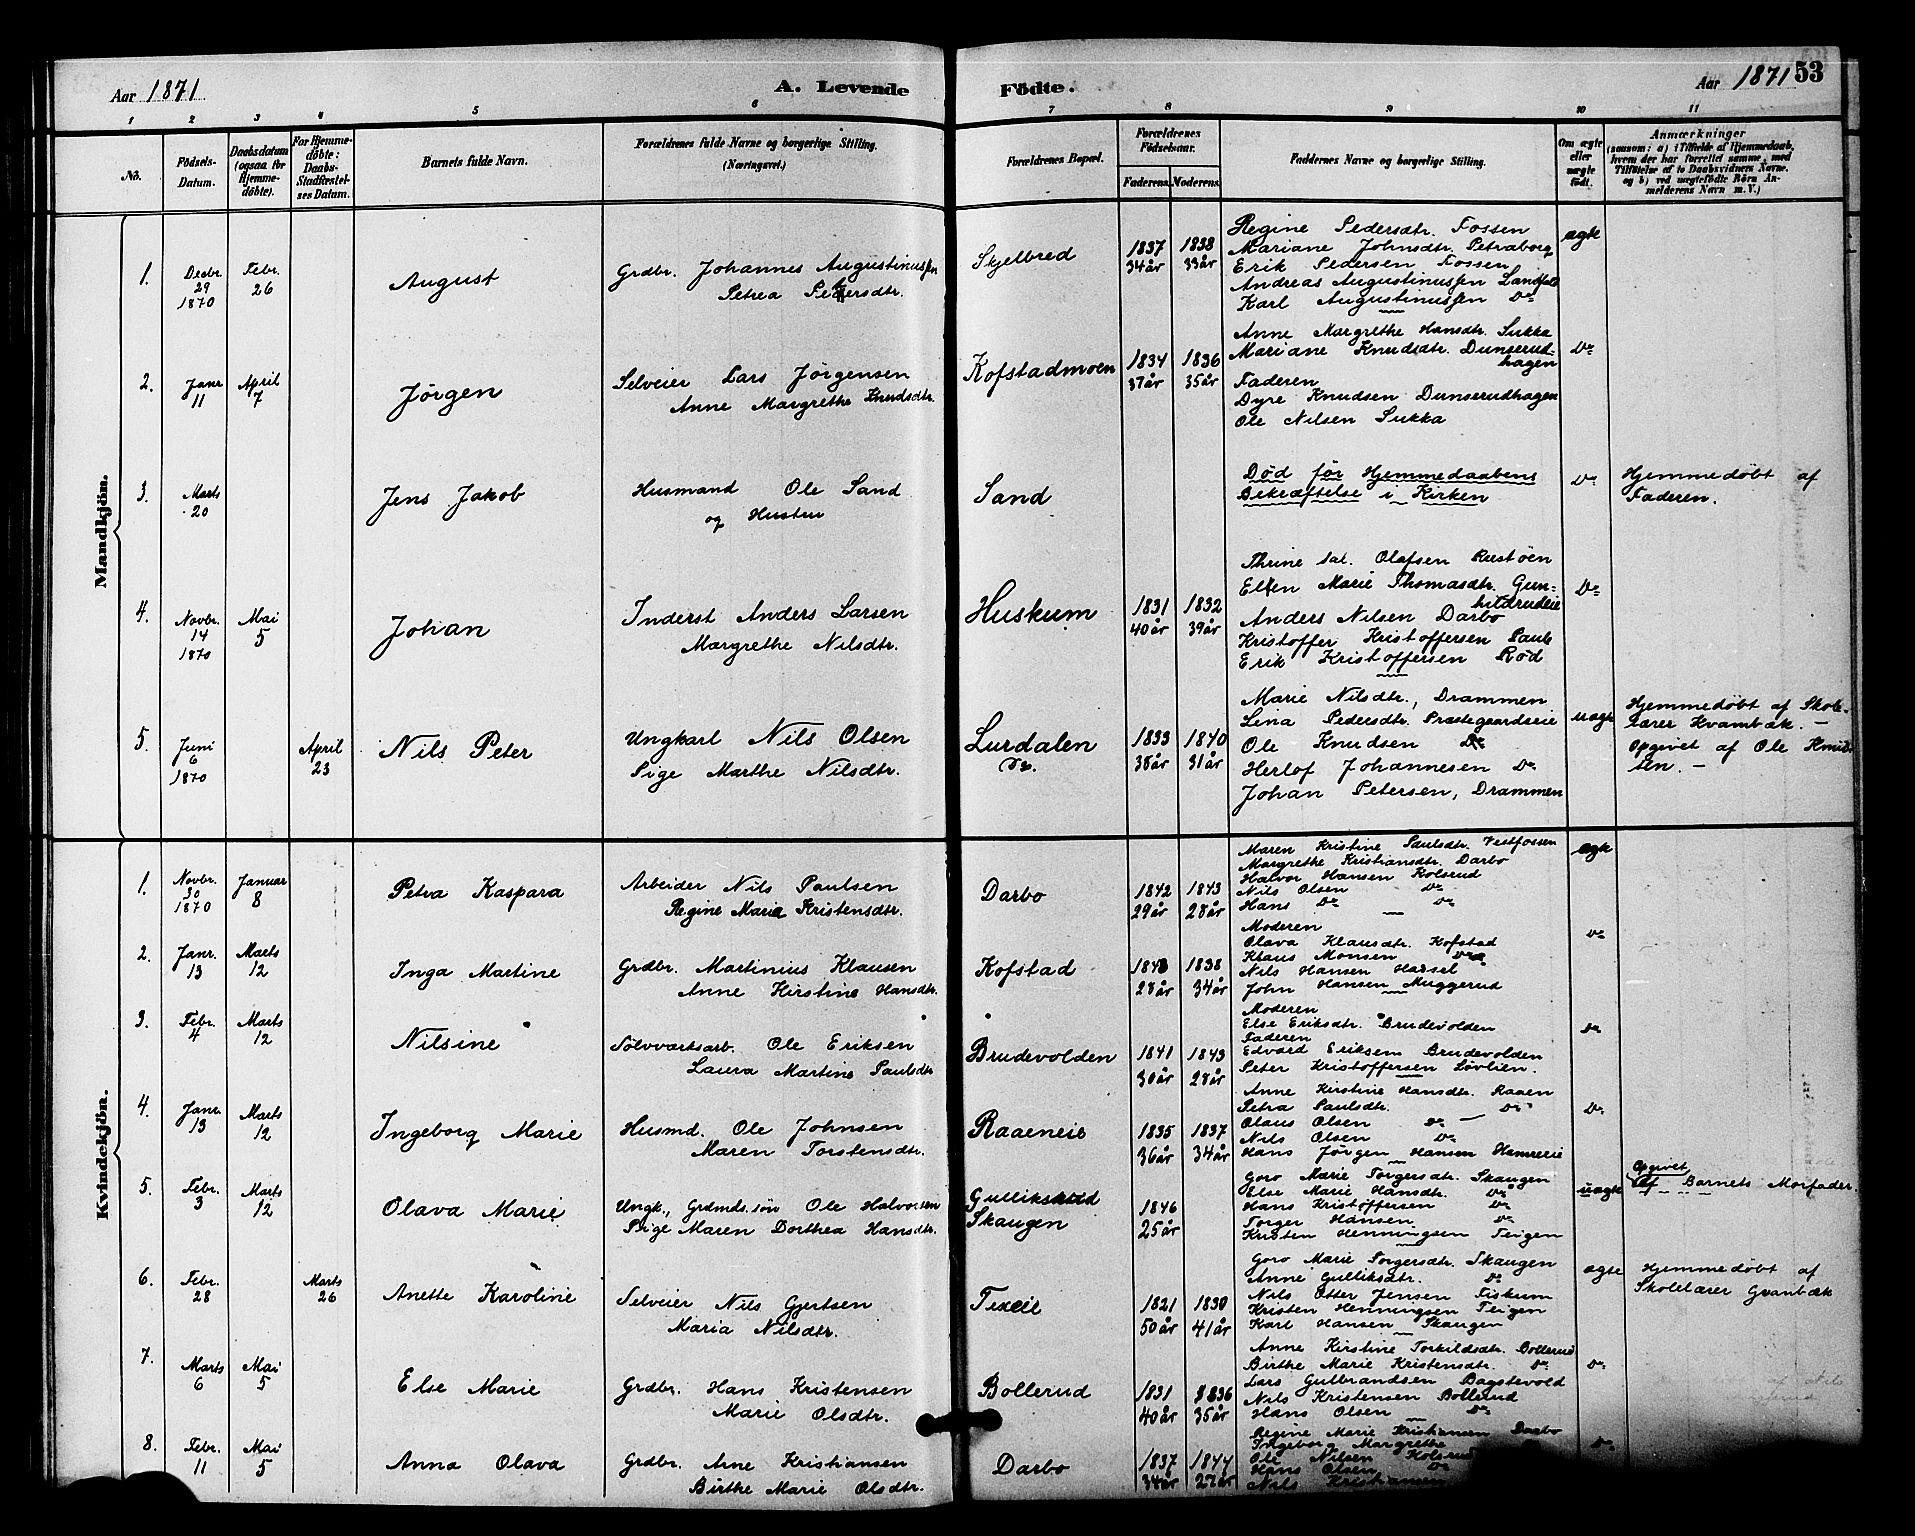 Aar 1871.
A. Levende Födte.
Aar 1871 53
1 2 3 4 5 6 7 8 9 10 11
No.
Födsels-Datum.
Daabsdatum (ogsaa for Hjemmedöbte).
For Hjemmedöbte: Daabs-Stadfæstelses Datum.
Barnets fulde Navn.
Forældrenes fulde Navne og borgerlige Stilling. (Næringsvei.)
Forældrenes Bopæl.
Forældrenes Födselsaar.
Faderens. Moderens.
Faddernes Navne og borgerlige Stilling.
Om ægte eller uægte födt.
Anmærkninger
(saasom: a) i Tilfælde af Hjemmedaab, hvem der har forrettet samme, med Tilföielse af to Daabsvidners Navne. og b) ved uægtefödte Börn Anmelderens Navn m. V.)
Mandkjön.
1.
Decbr. 29 1870
Febr. 26
August
Grdbr. Johannes Augustinussen
Petrea Petersdtr.
Skjelbred
1837 34 år
1838 33 år
Regine Pedersdtr. Fossen
Mariane Johnsdtr. Petraborg
Erik Pedersen Fossen
Andreas Augustinussen Landfald
Karl Augustinussen Do
ægte
2.
Janr 11
April 7
Jørgen
Selveier Lars Jørgensen
Anne Margrethe Knudsdtr.
Kofstadmoen
1834 37 år
1836 35 år
Anne Margrethe Hansdtr. Sukka
Mariane Knudsdtr. Dunserud-
hagen
Faderen
Dyre Knudsen Dunserudhagen
Ole Nilsen Sukka
Do
3.
Marts 20
Jens Jakob
Husmand Ole Sand
og Hustru
Sand
Død før Hjemmedaabens
Bekræftelse i Kirken
Do
Hjemmedøbt af
Faderen.
4.
Novbr. 14 1870
Mai 5
Johan
Inderst Anders Larsen
Margrethe Nilsdtr.
Huskum
1831 40 år
1832 39 år
Thrine Olafsen
Ellen Marie Thomasdtr. Gun-
hildrudeie
Anders Nilsen Darbo
Kristoffer Kristoffersen
Erik Kristoffersen Rød
Do
5.
Juni 6 1870
April 23
Nils Peter
Ungkarl Nils Olsen
Pige Marthe Nilsdtr.
Lurdalen
Do.
1833 38 år
1840 31 år
Marie Nilsdtr., Drammen
Lina Pedersdtr. Præstegaardseie
Ole Knudsen Do
Herlof Johannesen Do
Johan Petersen, Drammen
uægte
Hjemmedøbt af Skole-
lærer Kvambæk. -
Opgivet af Ole Knud-
sen. -
Kvindekjön.
1.
Novbr. 30 1870
Januar 8
Petra Kaspara
Arbeider Nils Paulsen
Regine Marie Kristensdtr.
Darbo
1842 29 år
1843 28 år
Maren Kristine Paulsdtr. Vestfossen
Margrethe Kristiansdtr. Darbo
Halvor Hansen Kolsrud
Nils Olsen Do
Hans Do Do
ægte
2.
Janr. 13
Marts 12
Inga Martine
Grdbr. Martinius Klausen
Anne Kirstine Hansdtr.
Kofstad
1843 28 år
1838 34 år
Moderen
Olava Klausdtr. Kofstad
Klaus Monsen Do
Nils Hansen Hassel
John Hansen Muggerud
Do
3.
Febr. 4
Marts 12
Nilsine
Sølvværtsarb. Ole Eriksen
Laura Martine Paulsdtr
Brudevolden
1841 30 år
1843 28 år
Moderen
Else Eriksdtr. Brudevolden
Faderen
Edvard Eriksen Brudevolden
Peter Kristoffersen Løvlien.
Do
4.
Janr. 13
Marts 12
Ingeborg Marie
Husmd. Ole Johnsen
Maren Torstensdtr.
Raaeneie
1835 36 år
1837 34 år
Anne Kirstine Hansdtr. Raaen
Petra Paulsdtr. Do
Olaus Olsen Do
Nils Olsen Do
Hans Jørgen Hansen Hamreeie
Do
5.
Febr. 3
Marts 12
Olava Marie
Ungk., Grdmds. søn Ole Halvorsen
Pige Maren Dorthea Hansdtr.
Gullikskrud
Skaugen
1846 25 år
Goro Marie Torgersdtr. Skaugen
Else Marie Hansdtr. Do
Hans Kristoffersen Do
Torger Hansen Do
Kristen Henningsen Teigen
uægte
Opgivet
af Barnets Morfader.
6.
Febr. 28
Marts 26
Anette Karoline
Selveier Nils Gjertsen
Maria Nilsdtr.
Texeie
1821 50 år
1830 41 år
Goro Marie Torgersdtr. Skaugen
Anne Gulliksdtr. Do
Nils Otter Jensen Fiskum
Kristen Henningsen Teigen
Karl Hansen Skaugen
ægte
Hjemmedøbt af
Skolelærer Gvanbæk
7.
Marts 6
Mai 5
Else Marie
Grdbr. Hans Kristensen
Marie Olsdtr.
Bollerud
1831 40 år
1836 35 år
Anne Kirstine Torkildsdtr. Bollerud
Birthe Marie Kristensdtr. Do
Lars Gulbrandsen Bagstevold
Nils Kristensen Bollerud
Hans Olsen Do
Do
8.
Febr. 11
Mai 5
Anna Olava
Grdbr. Arne Kristiansen
Birthe Marie Olsdtr.
Darbo
1837 34 år
1844 27 år
Regine Marie Kristiansen Darbo
Ingeborg Margrethe
Ole Nilsen Kolsrud
Hans Olsen Do
Nils Kristiansen
Do